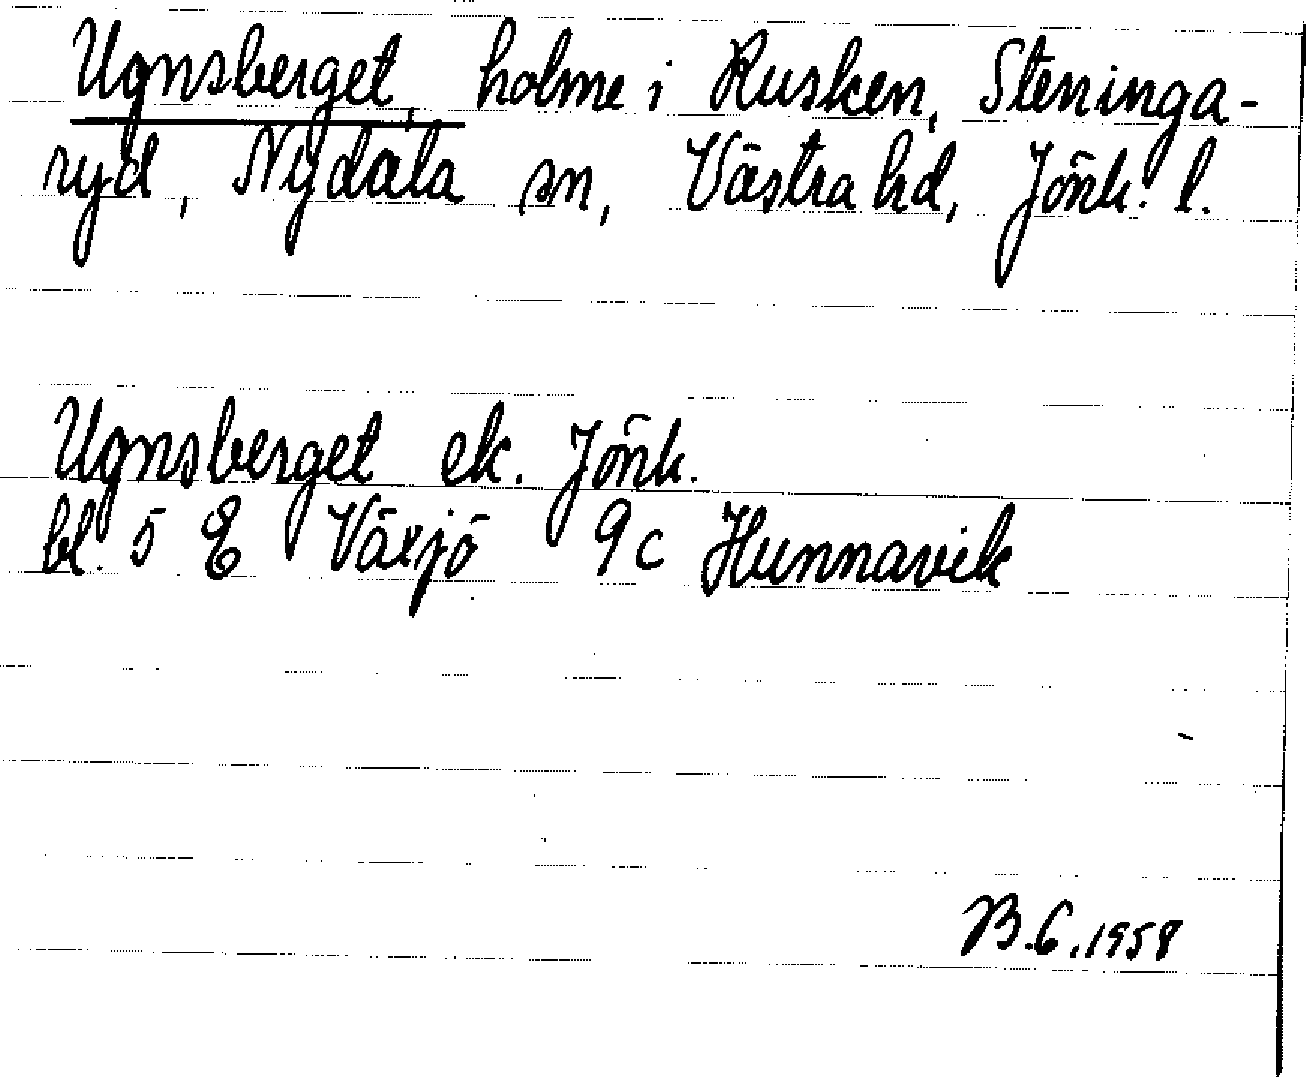 Ugnsberget, holme i Rusken, Steninga-
ryd, Nydala sn, Västra hd, Jönk. l.
Ugnsberget ek. Jönk.
bl. 5 E Växjö 9c Hunnavik
B.G.1958